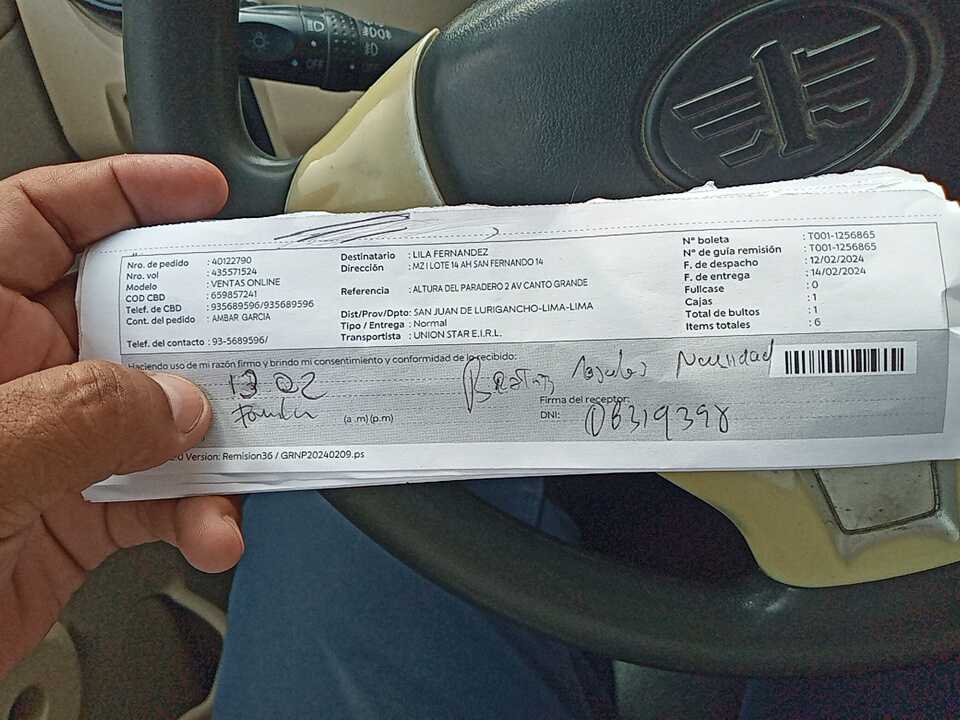 OFF
Nro. de pedido : 40122790
Nro. vol : 435571524
Modelo : VENTAS ONLINE
COD CBD : 659857241
Telef. de CBD : 935689596/935689596
Cont. del pedido : AMBAR GARCIA
Telef. del contacto : 93-5689596/
Destinatario : LILA FERNANDEZ
Dirección : MZ I LOTE 14 AH SAN FERNANDO 14
Referencia : ALTURA DEL PARADERO 2 AV CANTO GRANDE
Dist/Prov/Dpto: SAN JUAN DE LURIGANCHO-LIMA-LIMA
Tipo / Entrega : Normal
Transportista : UNION STAR E.I.R.L.
N° boleta : T001-1256865
N° de guía remisión : T001-1256865
F. de despacho : 12/02/2024
F. de entrega : 14/02/2024
Fullcase : 0
Cajas : 1
Total de bultos : 1
Items totales : 6
Haciendo uso de mi razón firmo y brindo mi consentimiento y conformidad de lo recibido:
13 02
(a .m) (p.m)
Firma del receptor:
DNI: 06319398
Version: Remision36 / GRNP20240209.ps